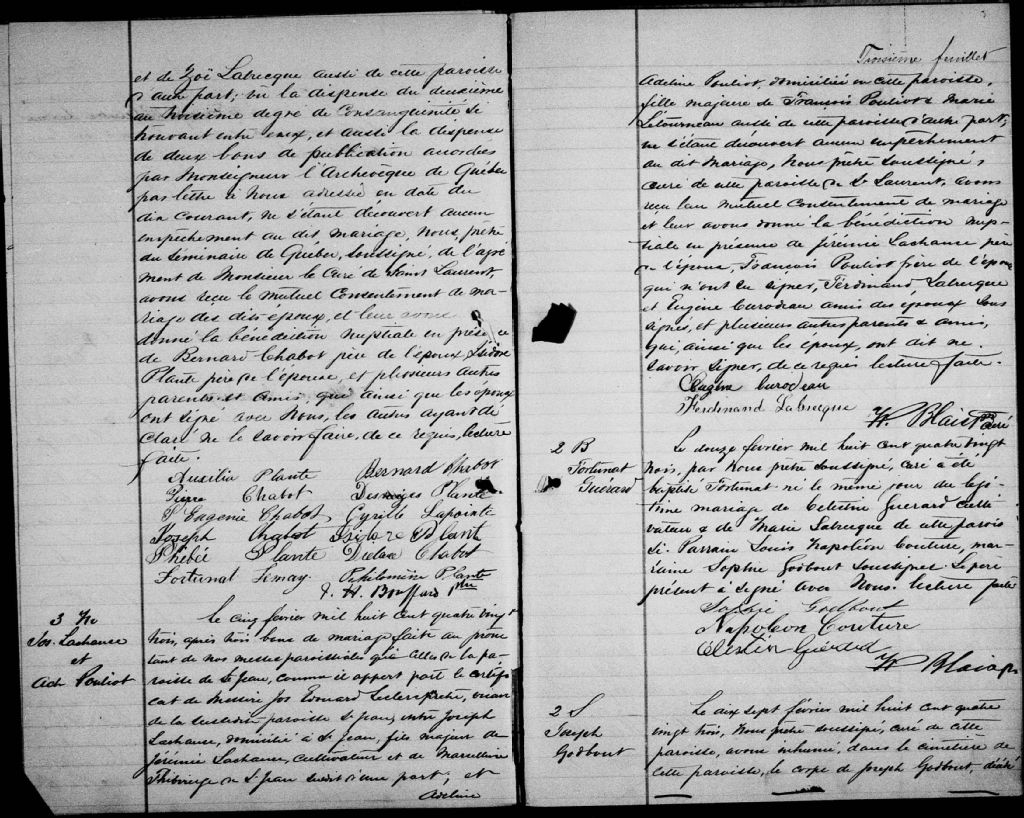 et de Zoë Labrecque aussi de cette paroisse
d'autre part; vu la dispense du deuxième
au troisième degré de Consanguinité se
trouvant entre eux, et aussi la dispense
de deux bans de publication accordées
par Monseigneur l'Archevêque de Québec
par lettre à Nous adressée en date du
dix courant, ne s'étant découvert aucun
empêchement au dit mariage, Nous, prêtre
du Séminaire de Québec, soussigné, de l'agré-
ment de Monsieur le Curé de Saint Laurent,
avons reçu le mutuel Consentement de ma-
riage des dits époux, et leur avons
donné la bénédiction nuptiale en présence
de Bernard Chabot père de l'époux Isidore
Plante père de l'épouse, et plusieurs autres
parents et amis, qui ainsi que les époux
ont signé avec Nous, les autres ayant dé-
claré ne le savoir faire, de ce requis, lecture
faite.
Auxilia Plante Bernard Chabot
Pierre Chabot Desneiges Plante
P Eugenie Chabot, Cyrille Lapointe
Joseph Chabot Isidore Plant
Phébée Plante Chabot
Fortunat Lemay. Philomène Plante
H. Bouffard Ptre
3 M
Jos. Lachance
et
Ad. Pouliot
Le cinq février mil huit cent quatre vingt
trois, après trois bans de mariage faits au prône
tant de nos messes paroissiales que celles de la pa-
roisse de St Jean, comme il appert par le certifi-
cat de Messire Jos Edouard Leclerc prêtre, vicaire
de la susdite paroisse St Jean, entre Joseph
Lachance, domicilié à St Jean, fils majeur de
Jérémie Lachance, Cultivateur et de Marcelline
Thivierge de St Jean susdit d'une part; et
Adeline
Troisième feuillet
Adeline Pouliot, domiciliée en cette paroisse,
fille majeure de François Pouliot & Marie
Létourneau aussi de cette paroisse d'autre part;
ne s'étant découvert aucun empêchement
au dit Mariage, Nous prêtre soussigné,
curé de cette paroisse de St Laurent, avons
reçu leur mutuel Consentement de mariage
et leur avons donné la bénédiction nup-
tiale en présence de Jérémie Lachance père
de l'époux, François Pouliot frère de l'épouse
qui n'ont su signer, Ferdinand Labrecque
et Eugène Curodeau amis des époux sous
signés, et plusieurs autres parents & amis,
qui, ainsi que les époux, ont dit ne
savoir signer, de ce requis lecture faite.
Eugène Curodeau
Ferdinand Labrecque
H. Blais Ptre Curé
2 B
Fortunat
Guérard
Le douze février mil huit cent quatre vingt
trois, par Nous prêtre soussigné, curé a été
baptisé Fortunat né le même jour du légi-
time mariage de Célestin Guérard culti-
vateur & de Marie Labrecque de cette parois
se. Parrain Louis Napoléon Couture, mar-
raine Sophie Godbout Soussignés. Le père
présent a signé avec Nous. lecture faite
Sophie Godbout
Napoléon Couture
Celestin Guérard
H. Blais Ptr
2 S
Joseph
Godbout
Le dix sept février mil huit cent quatre
vingt trois, Nous prêtre soussigné, curé de cette
paroisse, avons inhumé, dans le cimetière de
cette paroisse, le corps de Joseph Godbout, décédé